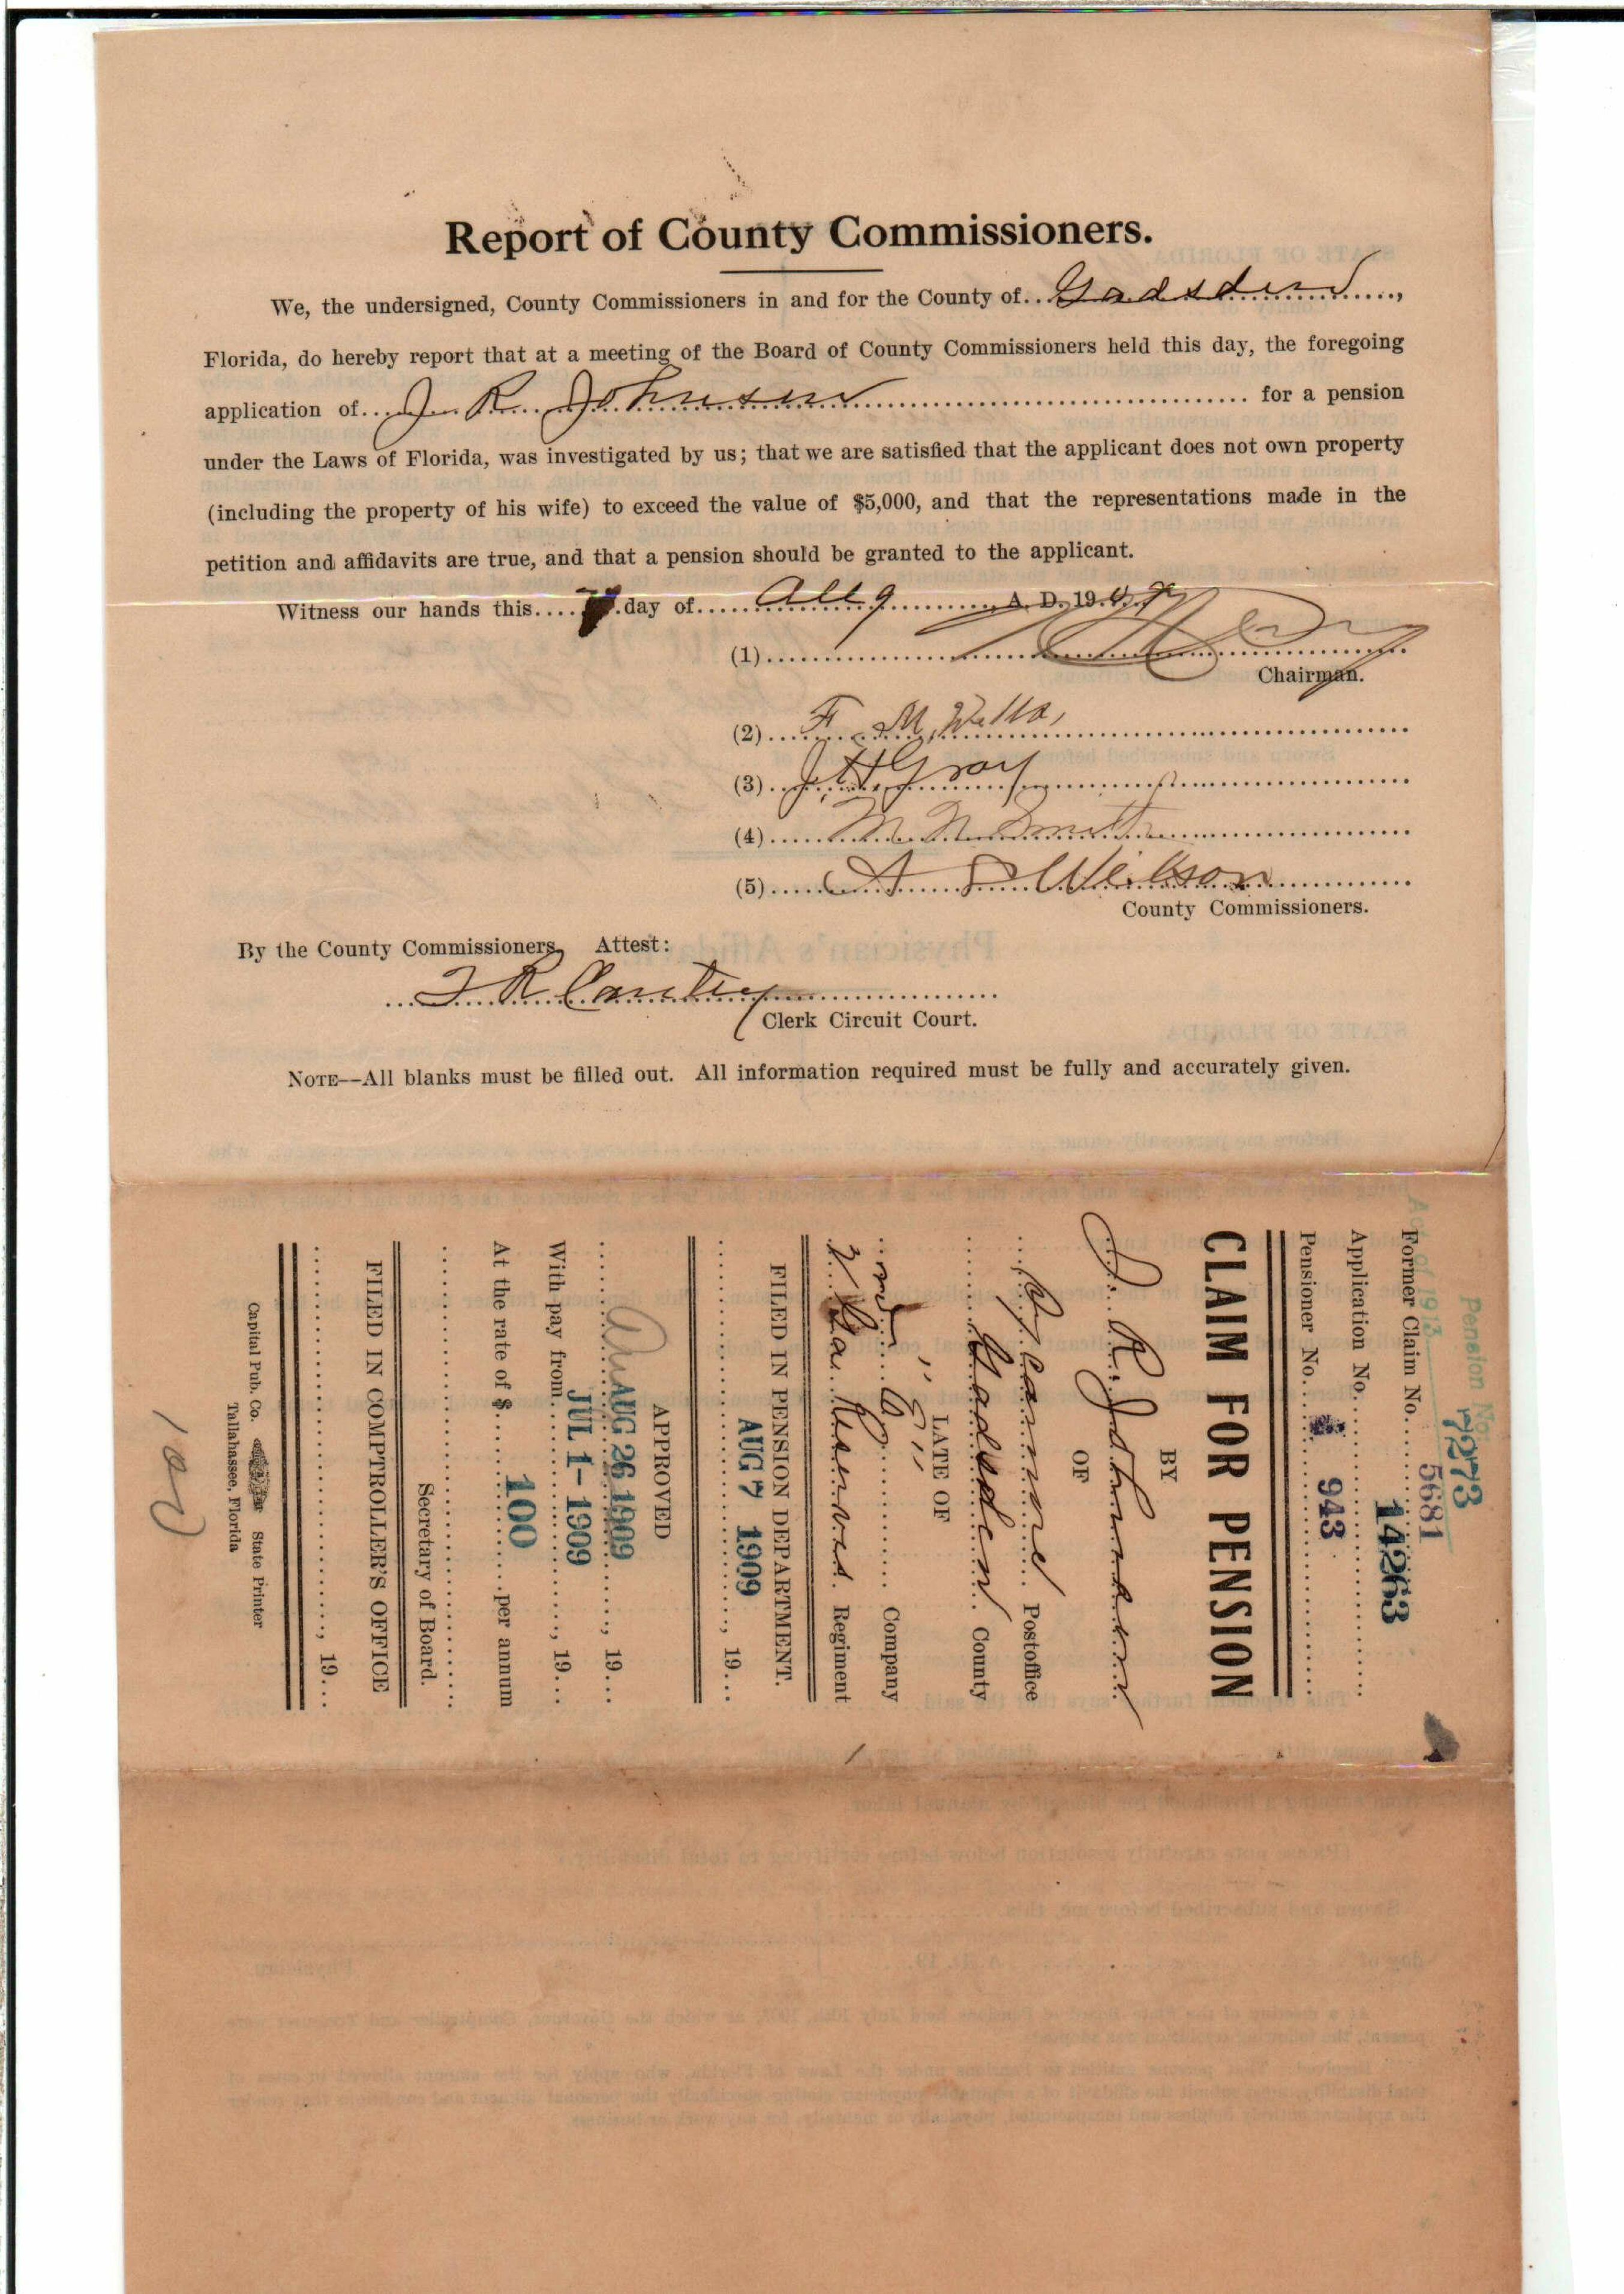 Report of County Commissioners.
We, the undersigned, County Commissioners in and for the County of.. Gadsden ....,
Florida, do hereby report that at a meeting of the Board of County Commissioners held this day, the foregoing
application of... J. R. Johnson .... for a pension
under the Laws of Florida, was investigated by us; that we are satisfied that the applicant does not own property
(including the property of his wife) to exceed the value of $5,000, and that the representations made in the
petition and affidavits are true, and that a pension should be granted to the applicant.
Witness our hands this.... day of..... Aug ..... A. D. 19.
(1)....
Chairman.
(2).... F. M. Wells,
(3).. J. H. Gray
(4)..... Smith
(5)..... A S Wilson
County Commissioners.
By the County Commissioners, Attest:
... R Cantey
Clerk Circuit Court.
NOTE--All blanks must be filled out. All information required must be fully and accurately given.
Pension No.
7273
Act of 1913
5681
Former Claim No. 14263
Application No.
Pensioner No. 943
CLAIM FOR PENSION
BY
J. R. Johnson
OF
Postoffice
Gadsden County
LATE OF
"G"
Company
2 Ga. Reserves. Regiment
FILED IN PENSION DEPARTMENT.
AUG 7 1909, 19...
APPROVED
AUG 26 1909, 19...
With pay from JUL 1- 1909, 19...
At the rate of $ 100 per annum
Secretary of Board.
FILED IN COMPTROLLER'S OFFICE
, 19...
Capital Pub. Co. State Printer
Tallahassee, Florida